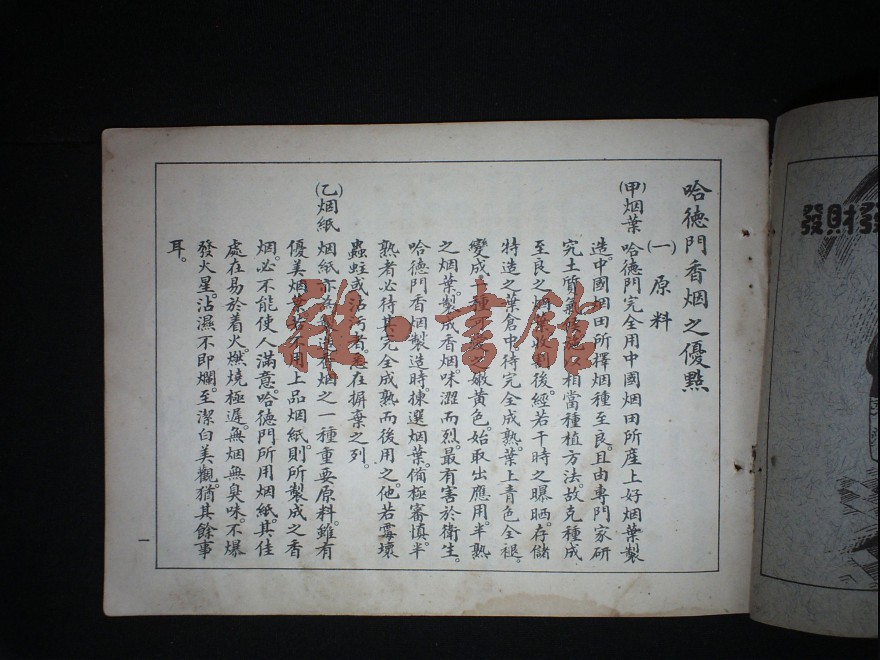 哈德門香烟之優點
(一)原料
(甲)烟葉 哈德門完全用中國烟田所產上好烟葉製
造。中國烟田所擇烟種至良。且由專門家研
究土質氣候 相當種植方法。故克種成
至良之烟葉收割後。經若干時之曝晒。存儲
特造之葉倉中。待完全成熟。葉上青色全褪。
變成一種可愛之嫩黃色。始取出應用。半熟
之烟葉。製成香烟。味澀而烈。最有害於衛生。
哈德門香烟製造時。揀選烟葉。備極審慎。半
熟者必待其完全成熟而後用之。他若霉壞
蟲蛀或沾污者。悉在摒棄之列。
(乙)烟紙 烟紙亦為製造香烟之一種重要原料。雖有
優美烟葉。若不用上品烟紙。則所製成之香
烟。必不能使人滿意。哈德門所用烟紙。其佳
處在易於着火。燃燒極遲。無烟無臭味。不爆
發火星。沾濕不即爛。至潔白美觀。猶其餘事
耳。
一
發財發
雜·書館